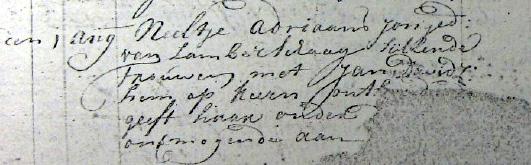 1 aug Neeltje Adriaans jonged:
van Lambertschaag sullende
trouwen met Jan Davidz
hem op haern
geeft haar onder
onvermogende aan